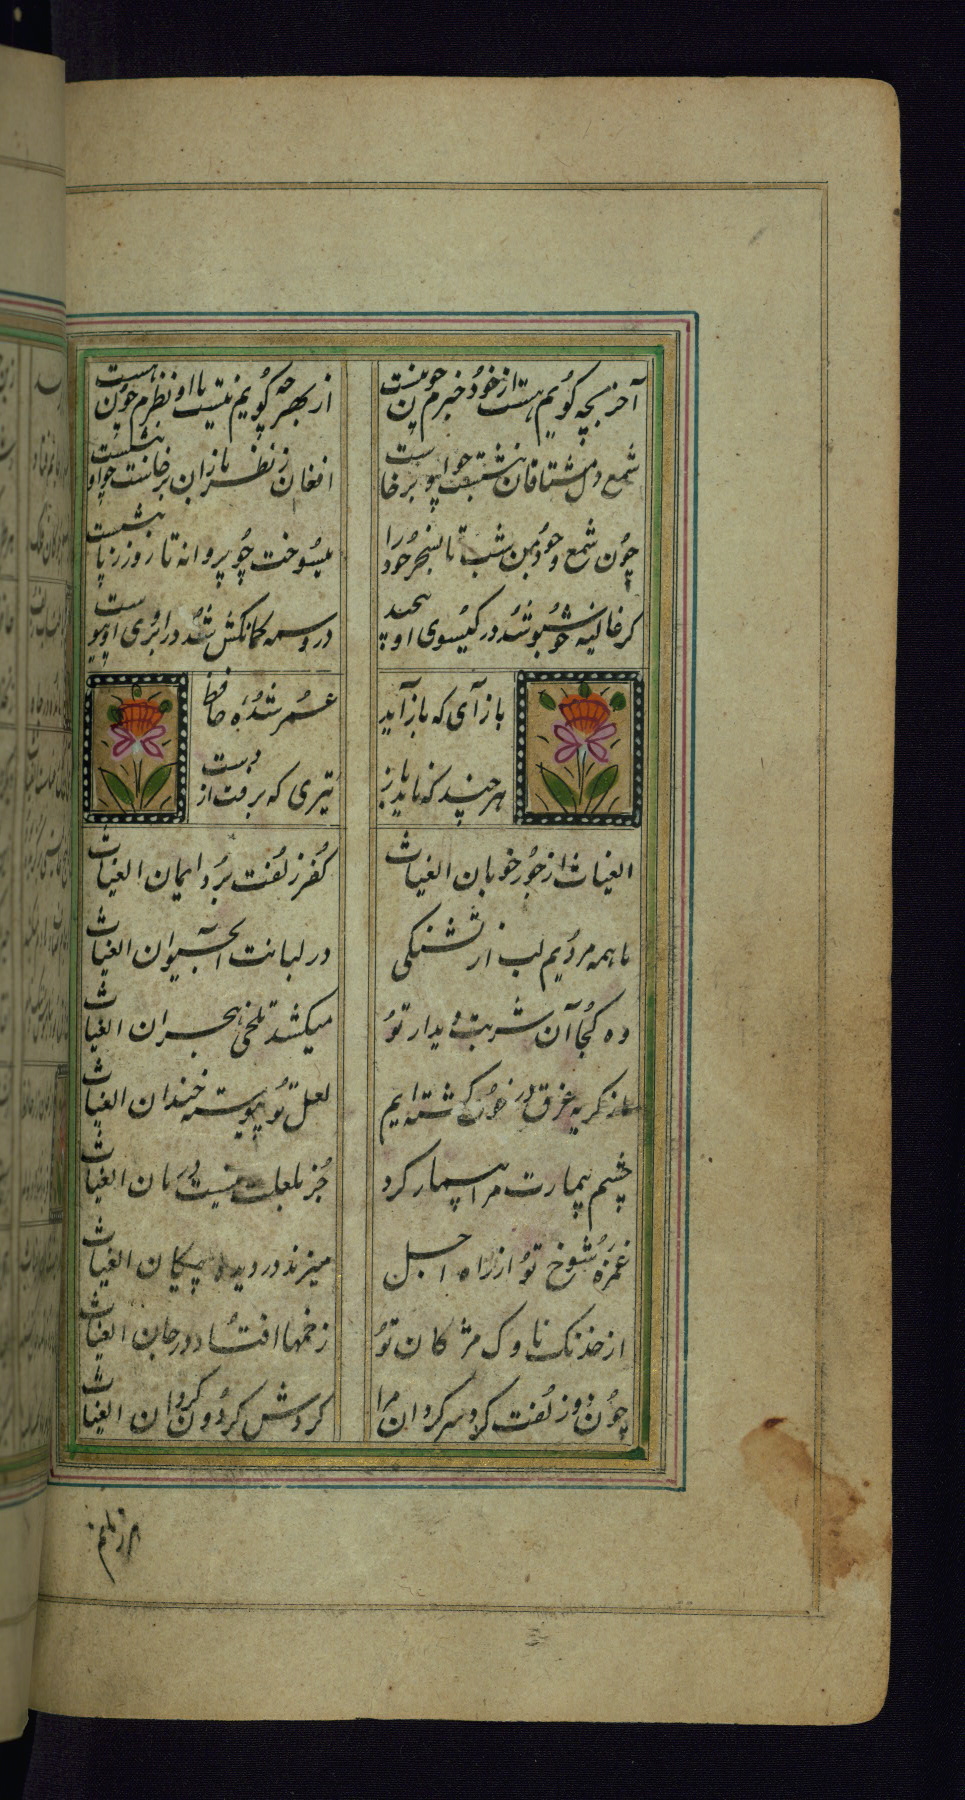 آخر بچه گویم هست از خود خبرم چون نیست
از بهر چه گویم نیست با او نظرم چون هست
شمع دل مشتاقان بنشست چو او برخاست
افغان ز نظر بازان برخاست چو او بنشست
چون شمع وجود من شب تا بسحر خود را
میسوخت چو پروانه تا روز ز پا بنشست
گر غالیه خوشبو شد در گیسوی او پیچید
ور وسمه کمانکش شد در ابروی او پیوست
باز آی که باز آید
عمر شدهٔ حافظ
هر چند که ناید باز
تیری که برفت از دست
الغیاث از جور خوبان الغیاث
کفر زلفت برد ایمان الغیاث
ما همه مردیم لب از تشنگی
در لبانت آب حیوان الغیاث
وه کجا آن شربت دیدار تو
میکشد تلخی هجران الغیاث
ما ز گریه غرق در خون گشته ایم
لعل تو پیوسته خندان الغیاث
چشم بیمارت مرا بیمار کرد
جز بلعلت نیست درمان الغیاث
غمزه شوخ تو از راه اجل
میزند در دیده پیکان الغیاث
از خدنک ناوک مژکان تو
زخمها افتاد در جان الغیاث
چون دو زلفت کرد سرکردان مرا
کردش کردون کردان الغیاث